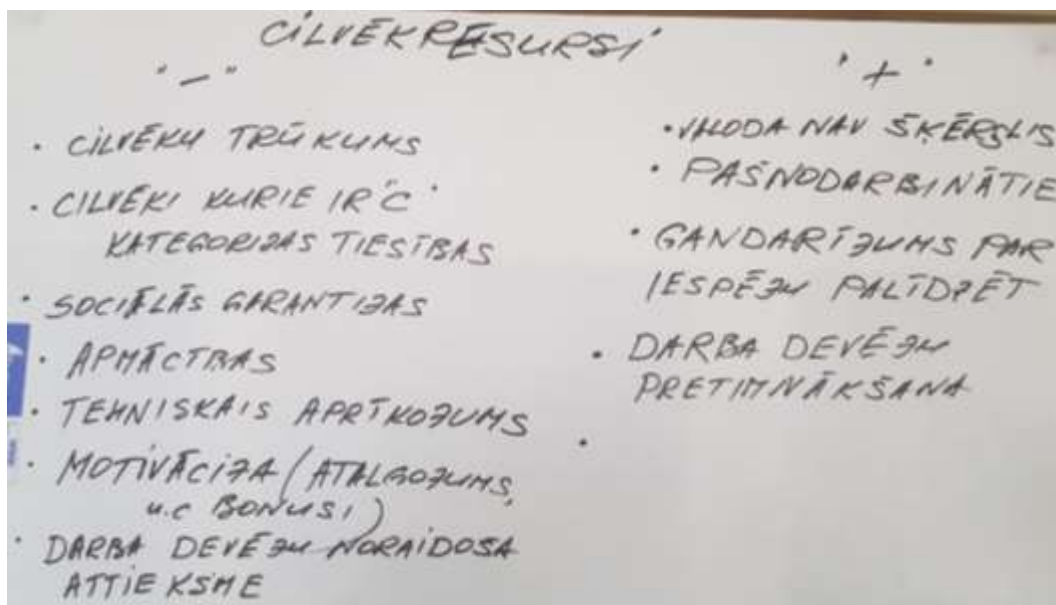 CILVĒKRESURSI
"-"
• CILVĒKU TRŪKUMS
• CILVĒKI KURIE IR "C"
KATEGORIJAS TIESĪBAS
• SOCIĀLĀS GARANTIJAS
• APMĀCĪBAS
• TEHNISKAIS APRĪKOJUMS
• MOTIVĀCIJA (ATALGOJUMS,
u.c BONUSI)
• DARBA DEVĒJU NORAIDOŠA
ATTIEKSME
"+"
• VALODA NAV ŠĶĒRSLIS
• PAŠNODARBINĀTIE
• GANDARĪJUMS PAR
IESPĒJU PALĪDZĒT
• DARBA DEVĒJU
PRETIMNĀKŠANA
•